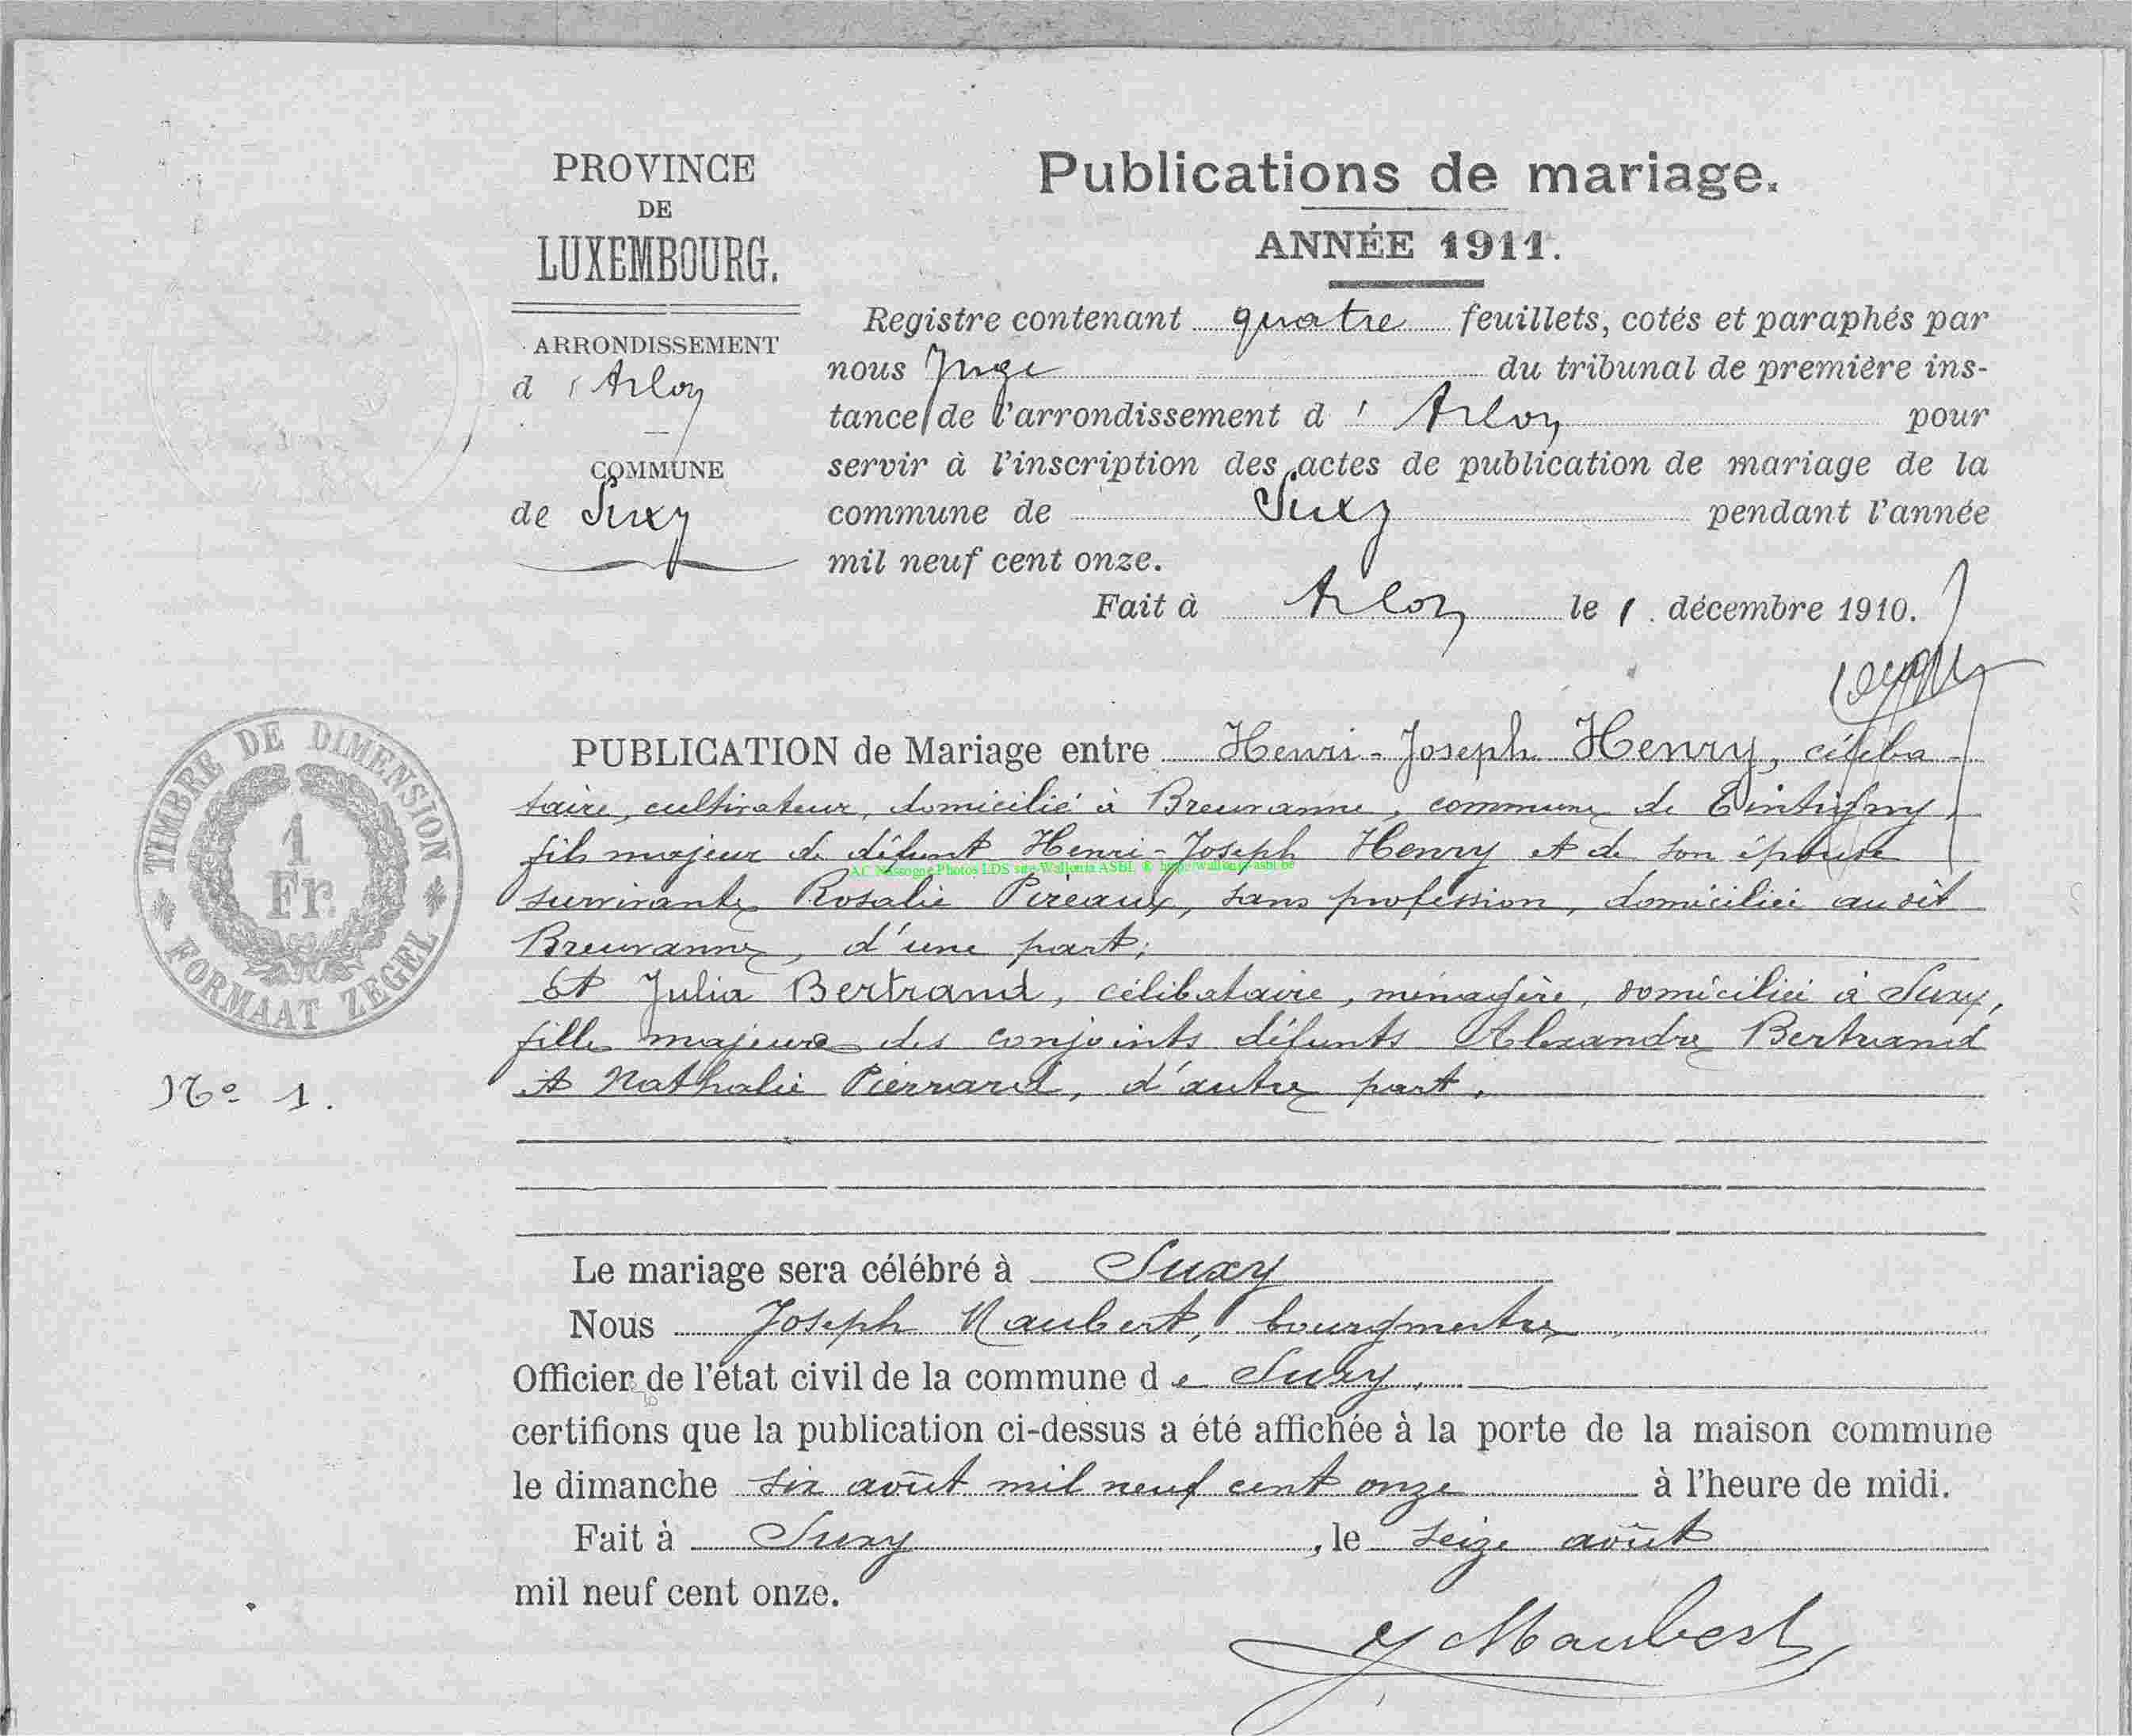 PROVINCE
DE
LUXEMBOURG.
ARRONDISSEMENT
d'Arlon
COMMUNE
de Suxy
Publications de mariage.
ANNÉE 1911.
Registre contenant quatre feuillets, cotés et paraphés par
nous Juge du tribunal de première ins-
tance de l'arrondissement d' Arlon pour
servir à l'inscription des actes de publication de mariage de la
commune de Suxy pendant l'année
mil neuf cent onze.
Fait à Arlon le 1. décembre 1910.
TIMBRE DE DIMENSION
1
Fr.
FORMAAT ZEGEL
No 1.
PUBLICATION de Mariage entre Henri-Joseph Henry, céliba-
taire, cultivateur, domicilié à Breuvanne, commune de Tintigny,
fils majeur de défunt Henri-Joseph Henry et de son épouse
survivante Rosalie Piréaux, sans profession, domiciliée audit
Breuvanne, d'une part;
Et Julia Bertrand, célibataire, ménagère, domiciliée à Suxy,
fille majeure des conjoints défunts Alexandre Bertrand
et Nathalie Pierrard, d'autre part.
AC Nassogne Photos LDS site Wallonia ASBL © http://wallonia-asbl.be
Le mariage sera célébré à Suxy
Nous Joseph Maubert, bourgmestre
Officier de l'état civil de la commune de Suxy,
certifions que la publication ci-dessus a été affichée à la porte de la maison commune
le dimanche six août mil neuf cent onze à l'heure de midi.
Fait à Suxy, le seize août
mil neuf cent onze.
J Maubert